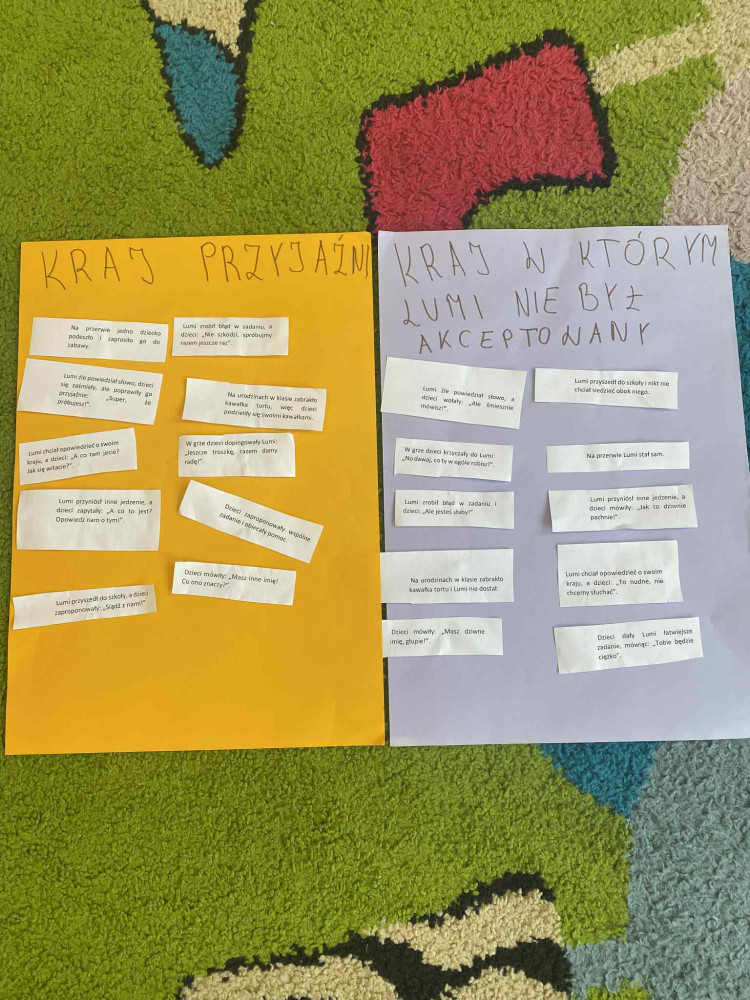 KRAJ PRZYJAŹNI
Na przerwie jedno dziecko
podeszło i zaprosiło go do
zabawy.
Lumi zrobił błąd w zadaniu, a
dzieci: „Nie szkodzi, spróbujmy
razem jeszcze raz”.
Lumi źle powiedział słowo, dzieci
się zaśmiały, ale poprawiły go
przyjaźnie: „Super, że
próbujesz!”.
Na urodzinach w klasie zabrakło
kawałka tortu, więc dzieci
podzieliły się swoimi kawałkami.
Lumi chciał opowiedzieć o swoim
kraju, a dzieci: „A co tam jecie?
Jak się witacie?”.
W grze dzieci dopingowały Lumi:
„Jeszcze troszkę, razem damy
radę!”.
Lumi przyniósł inne jedzenie, a
dzieci zapytały: „A co to jest?
Opowiedz nam o tym!”.
Dzieci zaproponowały wspólne
zadanie i obiecały pomoc.
Dzieci mówiły: „Masz inne imię!
Co ono znaczy?”.
Lumi przyszedł do szkoły, a dzieci
zaproponowały: „Siądź z nami!”
KRAJ W KTÓRYM
LUMI NIE BYŁ
AKCEPTOWANY
Lumi źle powiedział słowo, a
dzieci wołały: „Ale śmiesznie
mówisz!”.
Lumi przyszedł do szkoły i nikt nie
chciał siedzieć obok niego.
W grze dzieci krzyczały do Lumi:
„No dawaj, co ty w ogóle robisz!”.
Na przerwie Lumi stał sam.
Lumi zrobił błąd w zadaniu i
dzieci: „Ale jesteś słaby!”.
Lumi przyniósł inne jedzenie, a
dzieci mówiły: „Jak to dziwnie
pachnie!”.
Na urodzinach w klasie zabrakło
kawałka tortu i Lumi nie dostał.
Lumi chciał opowiedzieć o swoim
kraju, a dzieci: „To nudne, nie
chcemy słuchać”.
Dzieci mówiły: „Masz dziwne
imię, głupie!”.
Dzieci dały Lumi łatwiejsze
zadanie, mówiąc: „Tobie będzie
ciężko”.